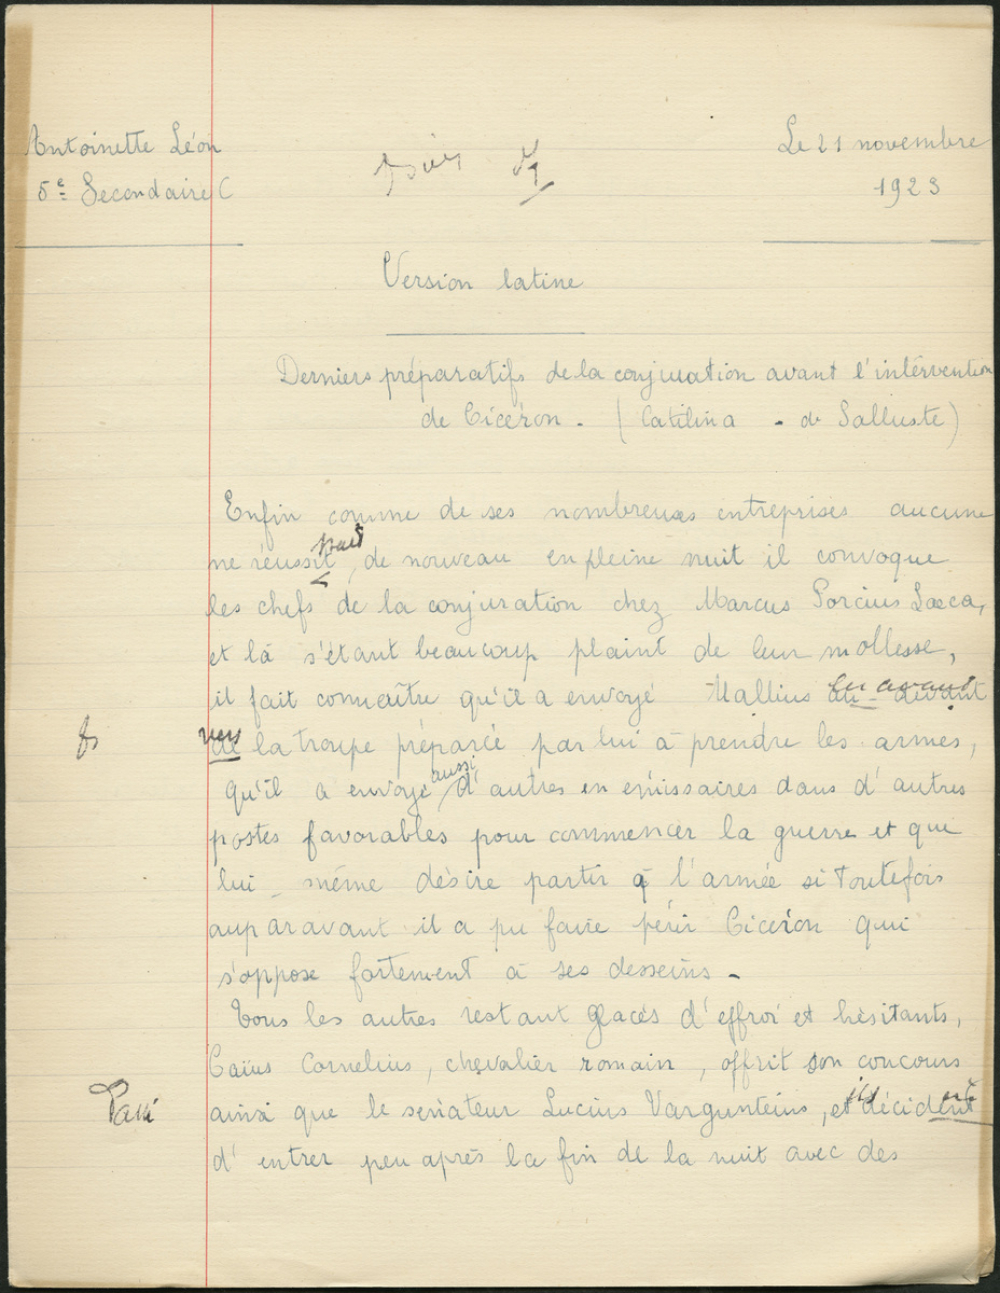 Antoinette Léon
Le 21 novembre
5e Secondaire C
1923
Version latine
Derniers préparatifs de la conjuration avant l'intervention
de Cicéron. (Catilina - de Salluste)
Enfin comme de ses nombreuses entreprises aucune
ne réussit, de nouveau en pleine nuit il convoque
les chefs de la conjuration chez Marcus Porcius Laeca,
et là s'étant beaucoup plaint de leur mollesse,
il fait connaître qu'il a envoyé Mallius au-devant
en avant
vers
de la troupe préparée par lui à prendre les armes,
aussi
qu'il a envoyé d'autres en émissaires dans d'autres
postes favorables pour commencer la guerre et que
lui-même désire partir à l'armée si toutefois
auparavant il a pu faire périr Cicéron qui
s'oppose fortement à ses desseins.
Tous les autres restant glacés d'effroi et hésitants,
Caïus Cornelius, chevalier romain, offrit son concours
ainsi que le sénateur Lucius Vargunteius, et décident
ils
fs
Passé
d'entrer peu après la fin de la nuit avec des